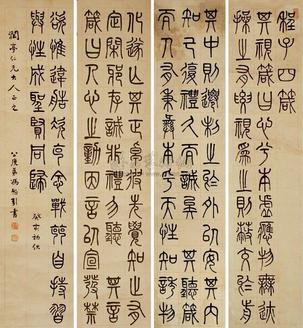 程子四箴
其視箴曰心兮本虛應物無迹
操之有要視為之則蔽交於前
其中則遷制之於外以安其內
克己復禮久而誠矣 其聽箴曰
人有秉彝本乎天性知誘物
化遂亡其正卓彼先覺知止有
定閑邪存誠非禮勿聽 其言
箴曰人心之動因言以宣發禁
欲惟危造次克念戰兢自持習
與性成聖賢同歸 癸亥初秋
潤亭仁兄大人正之 公度弟馮恕 書